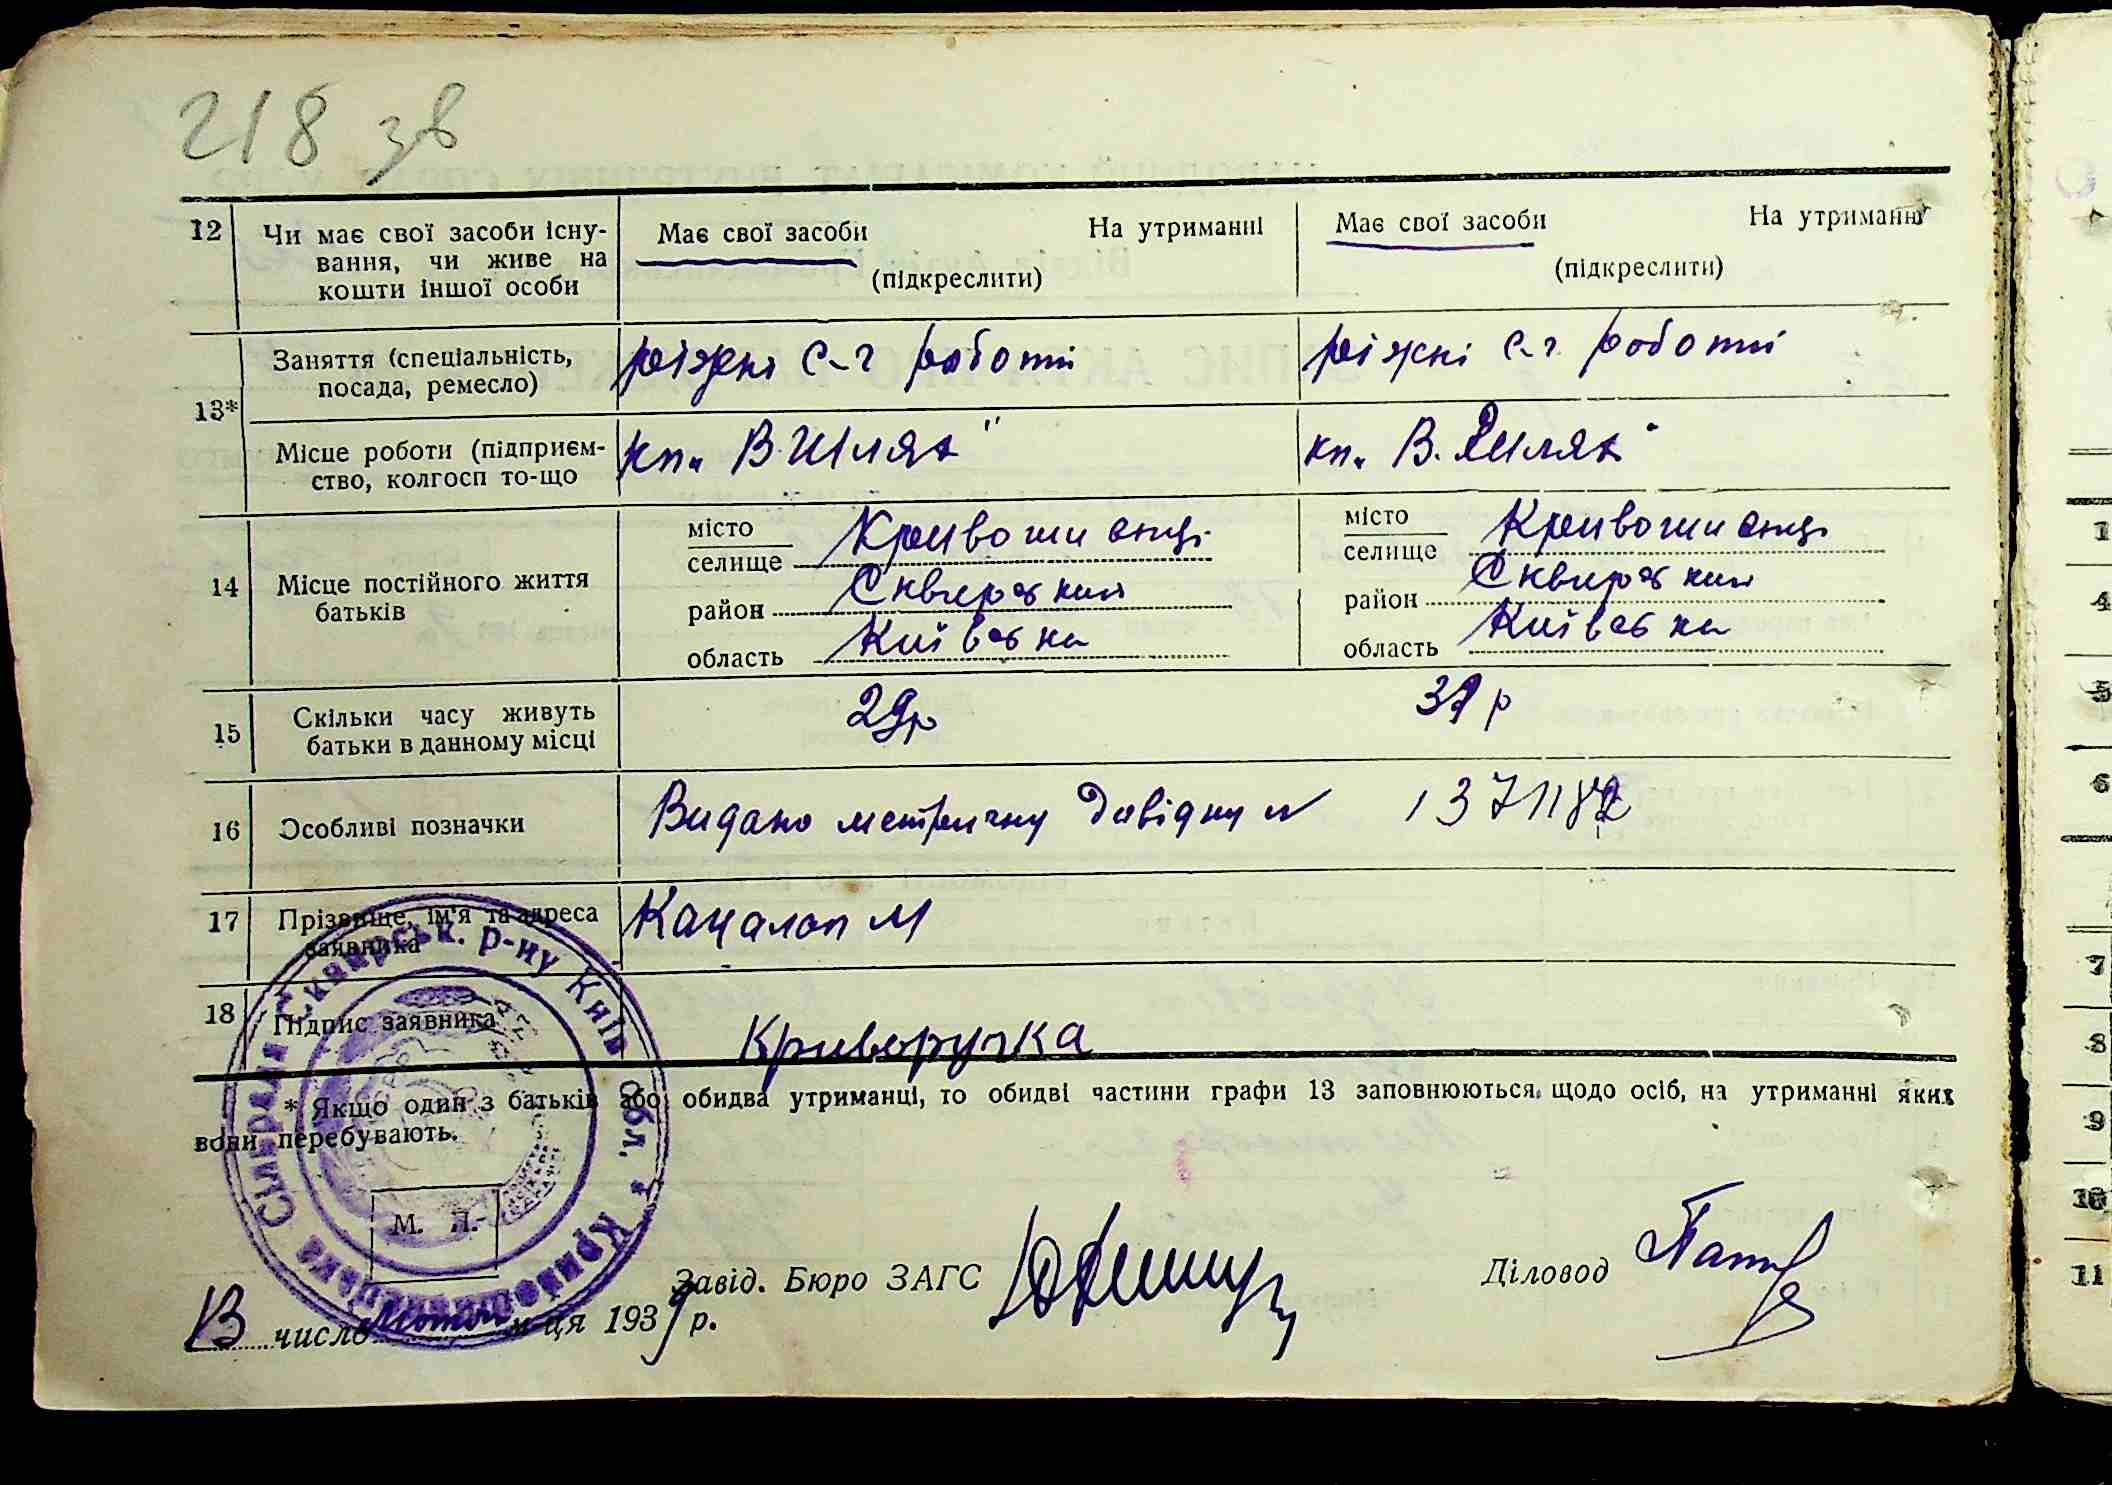 218 зв
12 Чи має свої засоби існу- Має свої засоби На утриманні Має свої засоби На утриманні
вання, чи живе на (підкреслити) (підкреслити)
кошти іншої особи
13* Заняття (спеціальність, ріжні с-г роботи ріжні с-г. роботи
посада, ремесло)
Місце роботи (підприєм- кп. В. Шлях" кп. В. Шлях"
ство, колгосп то-що
14 Місце постійного життя
батьків
місто Кривошиєнці місто Кривошиєнці
селище селище
район Сквирський район Сквирський
область Київська область Київська
15 Скільки часу живуть 29р 31 р
батьки в данному місці
16 Особливі позначки Видано метричну довідку № 137118
17 Прізвище, ім'я та адреса Качалоп М
заявника
18 Підпис заявника Криворучка
* Якщо один з батьків або обидва утриманці, то обидві частини графи 13 заповнюються щодо осіб, на утриманні яких
вони перебувають.
Сільрада Сквирськ. р-ну Київ обл. * Кривошиєнецька
М. П.
Завід. Бюро ЗАГС Діловод
13 число лютого м-ця 1939 р.
1
4
5
6
7
8
9
10
11